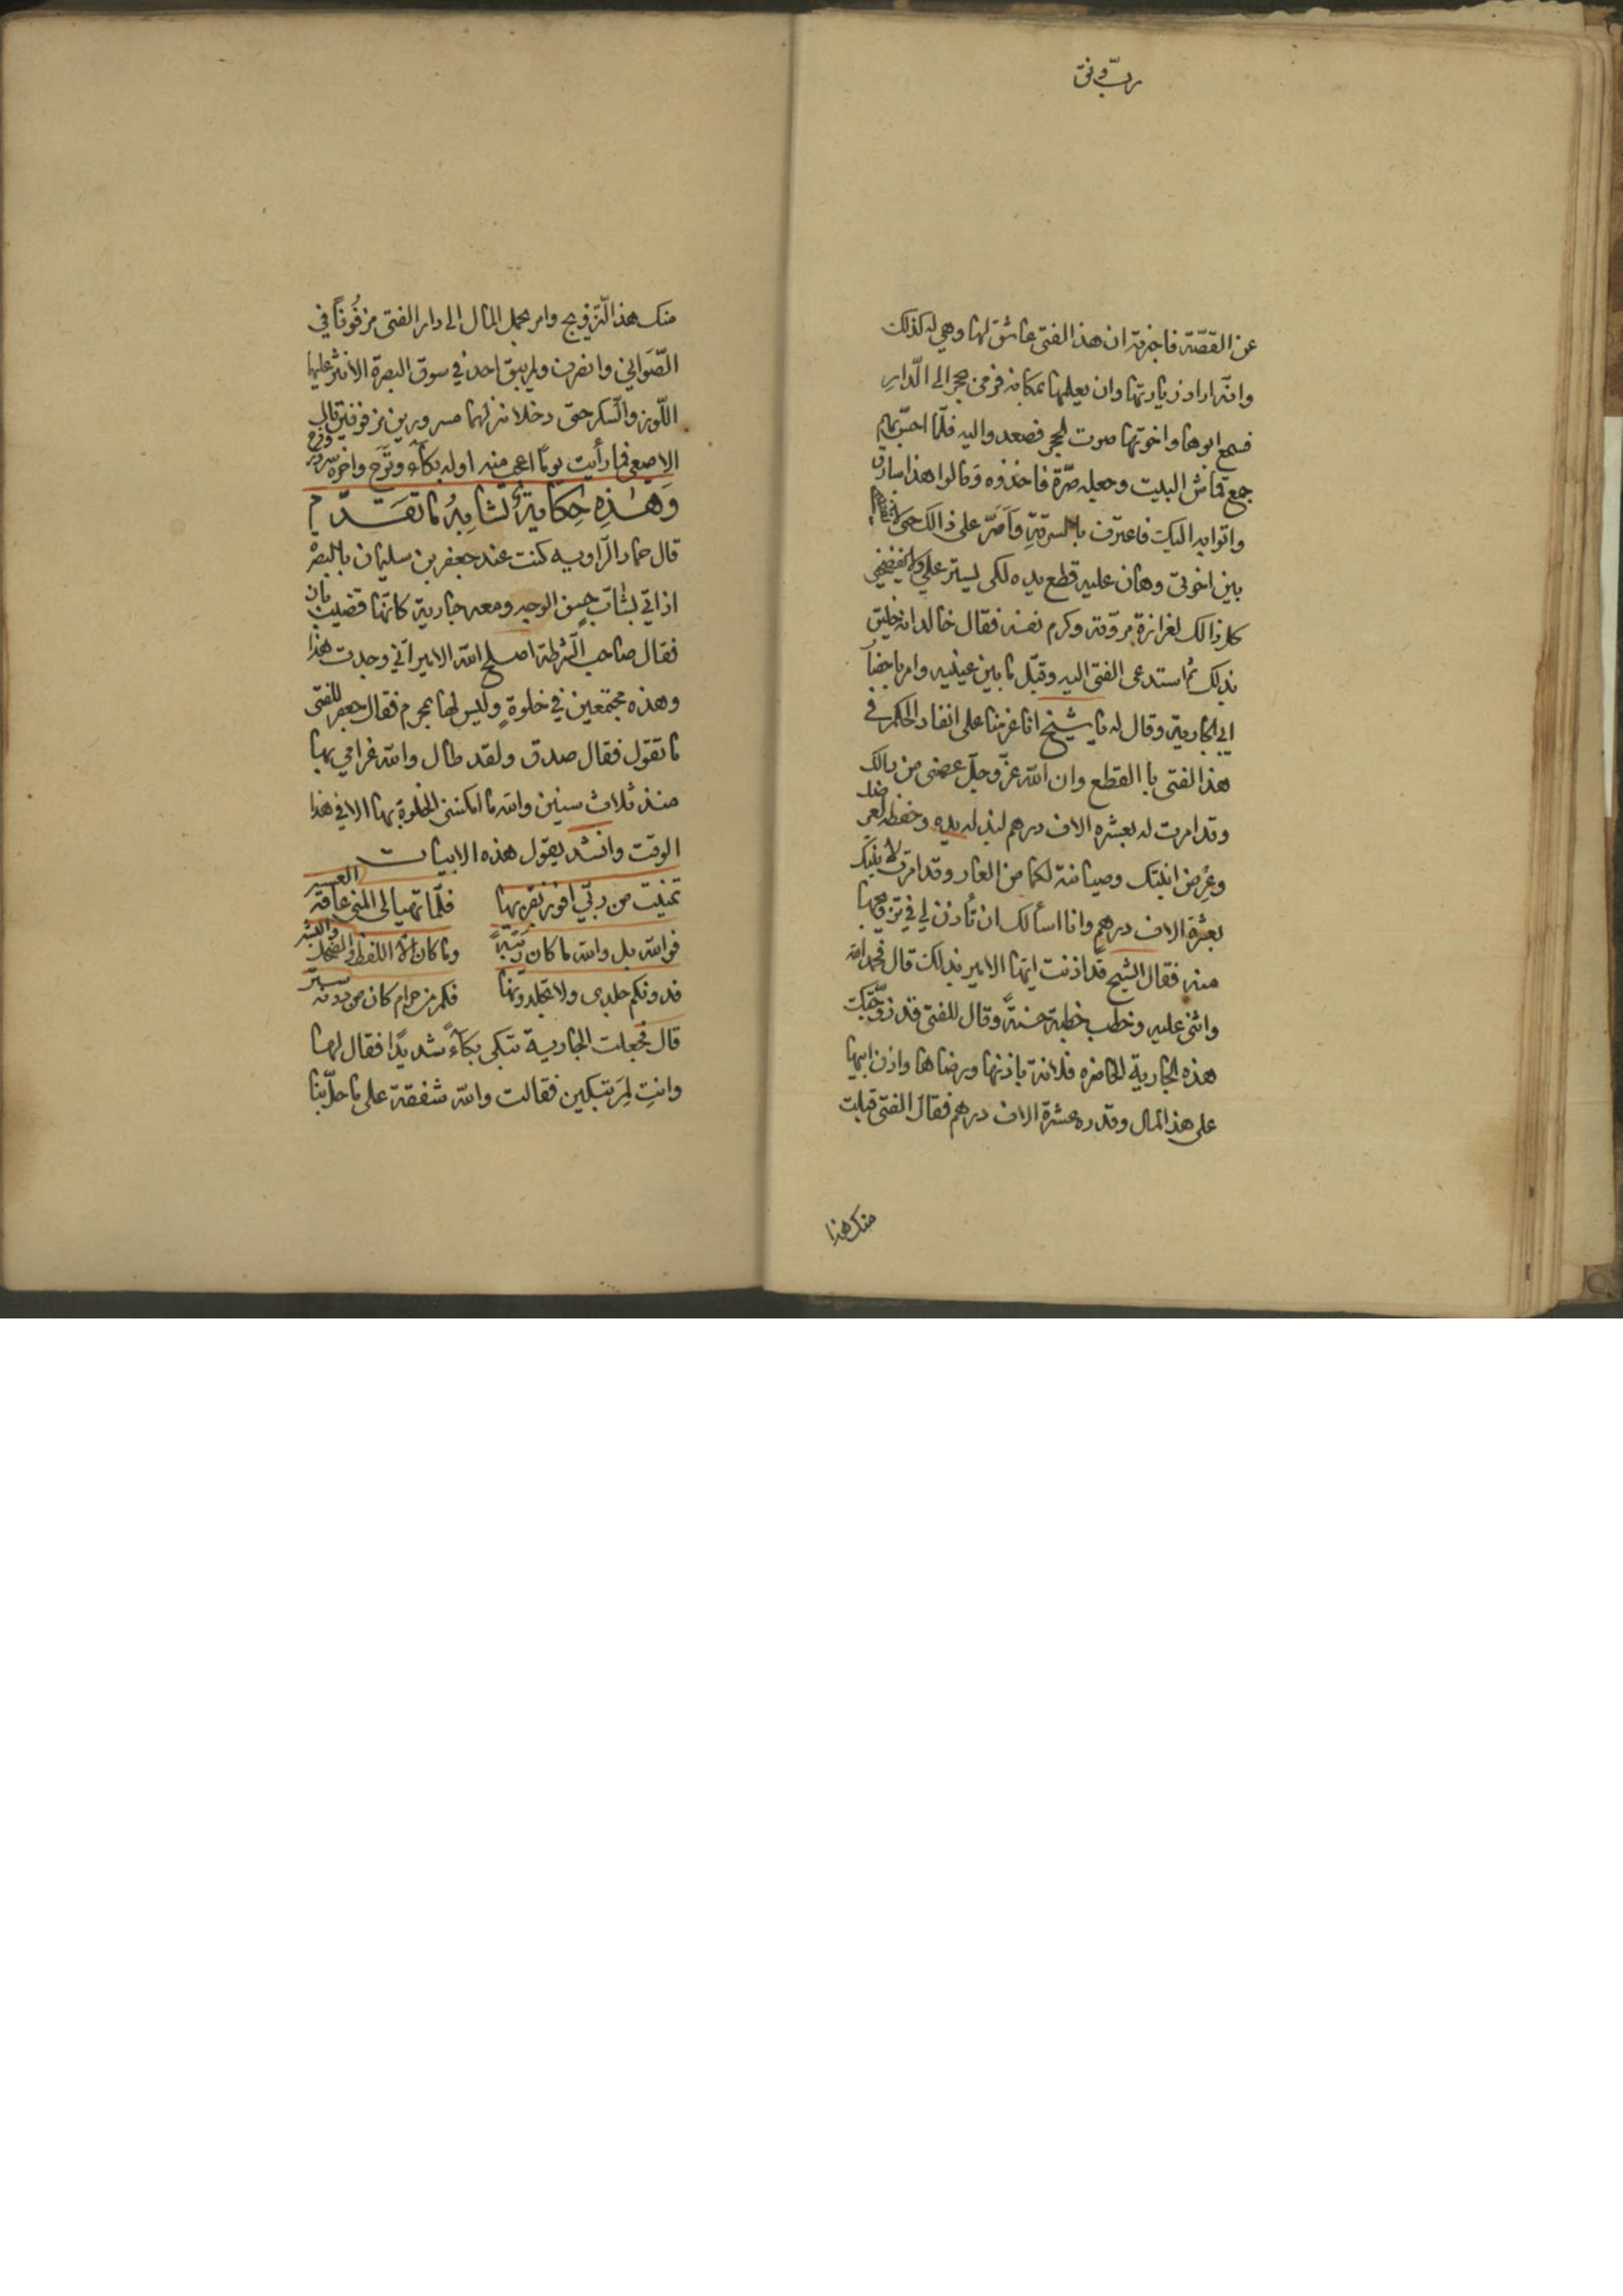 ربّ وفق
عن القصّة فاخبرته ان هذا الفتى عاشق لها وهي له كذلك
وانّه اراد زيارتها وان يعلمها بمكانه فرمى بحجر الى الدّار
فسمع ابوها واخوتها صوت الحجر فصعدوا اليه فلمّا احسّ بهم
جمع قماش البيت وجعله صرّة فاخذوه وقالوا هذا سارق
واتوا به اليك فاعترف بالسرقة واصرّ على ذالك حتى لا
بين اخوتى وهان عليه قطع يده لكى يستر علي ولا يفضحني
كل ذالك لغزارة مروّته وكرم نفسه فقال خالد انه خليق
بذلك ثم استدعى الفتى اليه وقبّل ما بين عينيه وامر باحضار
ابي الجارية وقال له يا شيخ انا عزمنا على انفاد الحكم في
هذا الفتى با القطع وان الله عزّ وجلّ عصمنى من ذالك
وقد امرت له بعشره الاف درهم لبذله يده وحفظه لعرضك
وعرض ابنتك وصيانته لكما من العار وقد امرت لابنتك
بعشرة الاف درهم وانا اسألك ان تأذن لي في تزويجها
منه فقال الشيخ قد اذنت ايّها الامير بذلك قال فحمد الله
واثنى عليه وخطب خطبة حسنة وقال للفتى قد زوّجتك
هذه الجارية الحاضره فلانة باذنها ورضاها واذن ابيها
على هذا المال وقدره عشرة الاف درهم فقال الفتى قبلت
منك هذا
منك هذا التّزويج وامر بحمل المال الى دار الفتى مزفُوفاً في
الصّوَاني وانصرف ولم يبق احد في سوق البصرة الا نثر عليها
اللّوز والسّكر حتى دخلا منزلهما مسرورين مزفوفين قال
الاصمعى فما رأيت يوماً اعجب منه اوله بكآء وترح واخره سرور وفرح
وَهٰذِهِ حِكَايَةٌ تُشَابِهُ مَا تَقَدَّم
قال حماد الرّاويه كنت عند جعفر بن سليمان بالبصرة
اذ اتي بشابّ حسن الوجه ومعه جارية كانّها قضيب بان
فقال صاحب الشرطة اصلح الله الامير انّي وجدت هذا
وهذه مجتمعين في خلوةٍ وليس لها بمحرم فقال جعفر للفتى
ما تقول فقال صدق ولقد طال والله غرامي بها
منذ ثلاث سنين والله ما امكننى الخلوة بها الا في هذا
الوقت وانشد يقول هذه الابيات
تمنيت من ربّي افوز بقربها فلمّا تهيا لى المنى عاقه العسر
فوالله بل والله ما كان ريبةً وما كان الّا اللفظ والضحك والبشر
فدونكم جلدى ولا تجلدونها فكم من حرام كان من دونه ستر
قال فجعلت الجارية تبكى بكآءً شديدًا فقال لها
وانتِ لِمَ تبكين فقالت والله شفقة على ما حلّ بنا